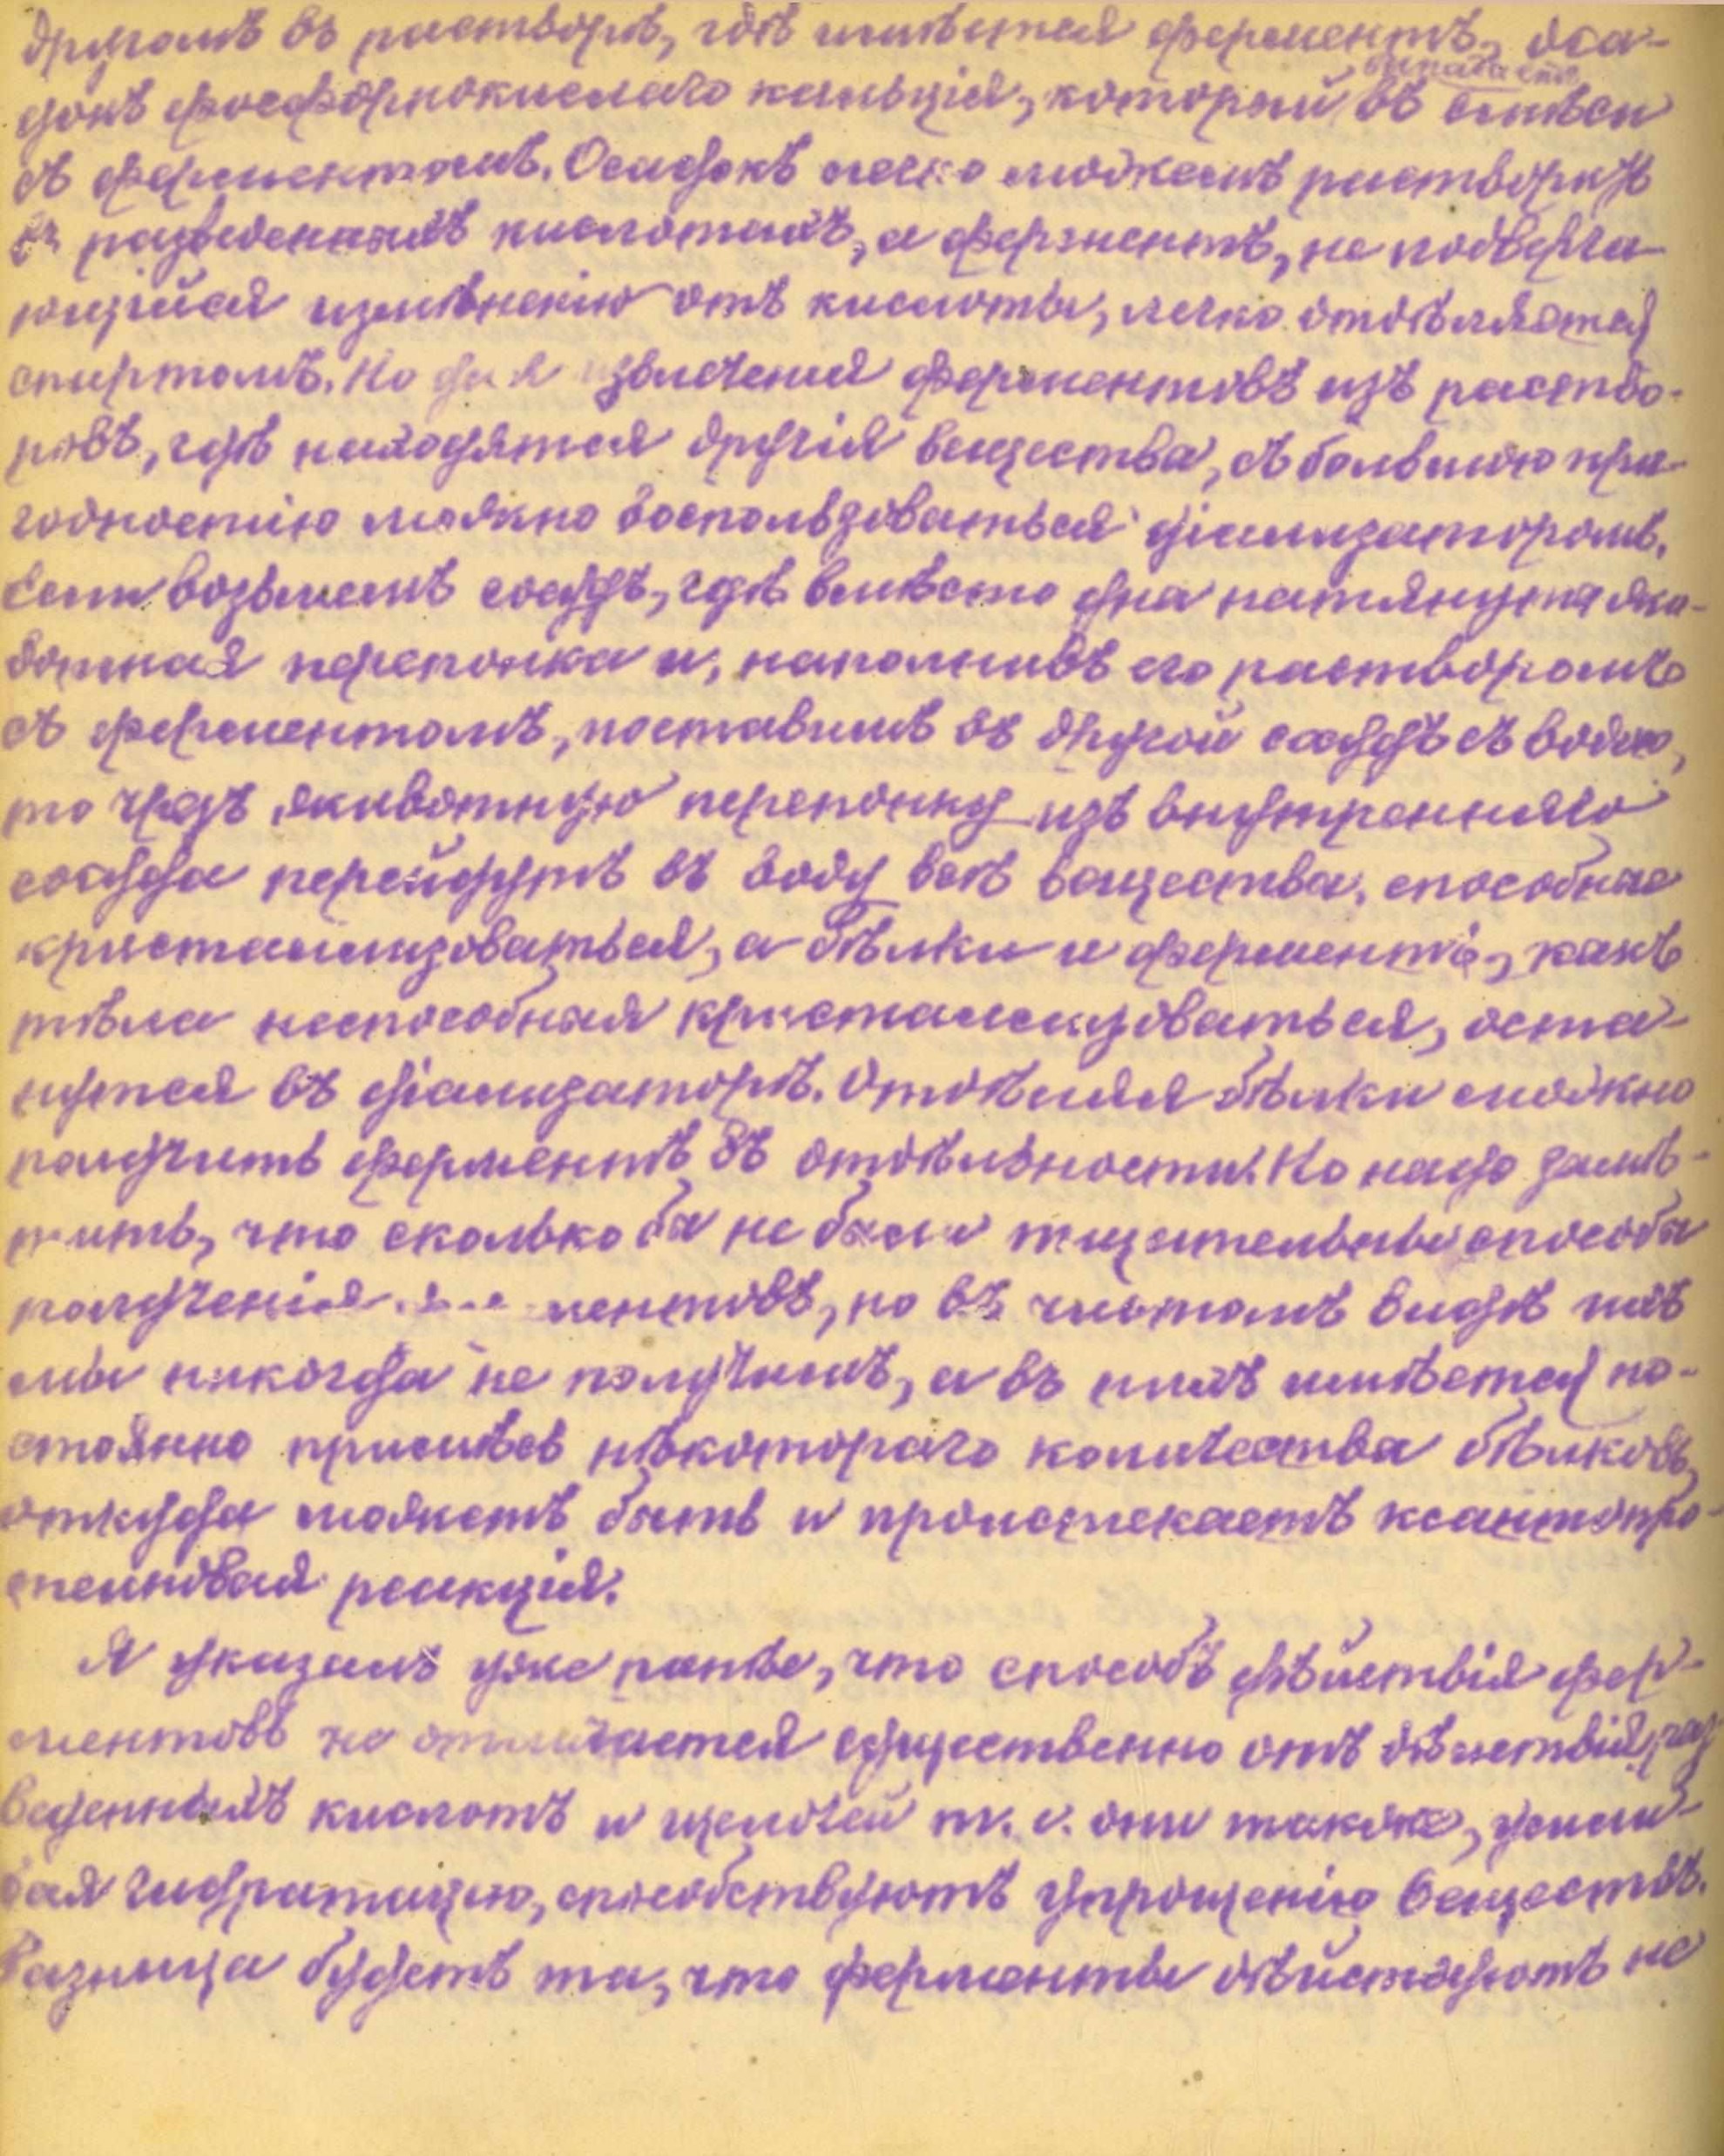 другомъ въ растворѣ, гдѣ имѣется ферментъ, оса-
докъ фосфорнокислаго кальція, который выпадаетъ въ смѣси
съ ферментомъ. Осадокъ легко можемъ растворить
въ разведенныхъ кислотахъ, а ферментъ, не подверга-
ющійся измѣненію отъ кислоты, легко отдѣляется
спиртомъ. Но для извлеченія ферментовъ изъ раство-
ровъ, гдѣ находятся другія вещества, съ большою при-
годностію можно воспользоваться діализаторомъ.
Если возьмемъ сосудъ, гдѣ вмѣсто дна натянута жи-
вотная перепонка и, наполнивъ его растворомъ
съ ферментомъ, поставимъ въ другой сосудъ съ водою,
то чрезъ животную перепонку изъ внутренняго
сосуда перейдутъ въ воду всѣ вещества, способные
кристаллизоваться, а бѣлки и ферменты, какъ
тѣла неспособныя кристаллизоваться, оста-
нутся въ діализаторѣ. Отдѣляя бѣлки можно
получить ферментъ въ отдѣльности. Но надо замѣ-
тить, что сколько бы не были тщательны способы
полученія ферментовъ, но въ чистомъ видѣ ихъ
мы никогда не получимъ, а въ нихъ имѣется по-
стоянно примѣсь нѣкотораго количества бѣлковъ,
откуда можетъ быть и проистекаетъ ксантопро-
теиновая реакція.
Я указалъ уже ранѣе, что способъ дѣйствія фер-
ментовъ не отличается существенно отъ дѣйствія раз
веденныхъ кислотъ и щелочей т. е. они также, усили-
вая гидратацію, способствуютъ упрощенію веществъ.
Разница будетъ та, что ферменты дѣйствуютъ не